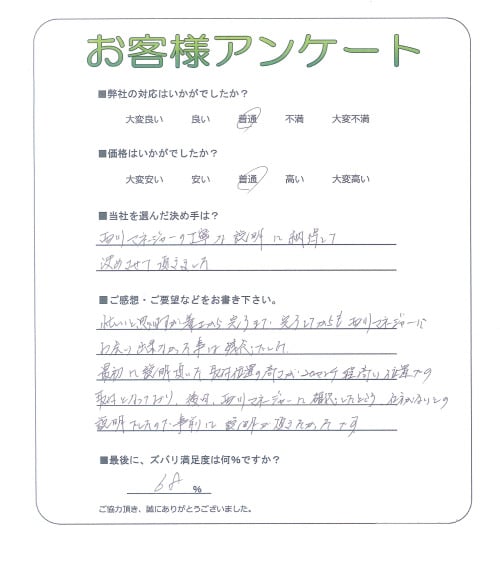 お客様アンケート
■弊社の対応はいかがでしたか?
大変良い 良い 普通 不満 大変不満
■価格はいかがでしたか?
大変安い 安い 普通 高い 大変高い
■当社を選んだ決め手は?
西川マネージャーの丁寧な説明に納得して
決めさせて頂きました
■ご感想・ご要望などをお書き下さい。
忙しいと思いますが着工から完了まで、完了してからも西川マネージャーに
お会い出来なかった事は残念でした。
最初に説明頂いた取付位置の高さが 程高い位置での
取付となっており、後日、西川マネージャーに確認したところ 仕方がないとの
説明でしたので事前に説明が頂きたかったです
■最後に、ズバリ満足度は何%ですか?
68 %
ご協力頂き、誠にありがとうございました。